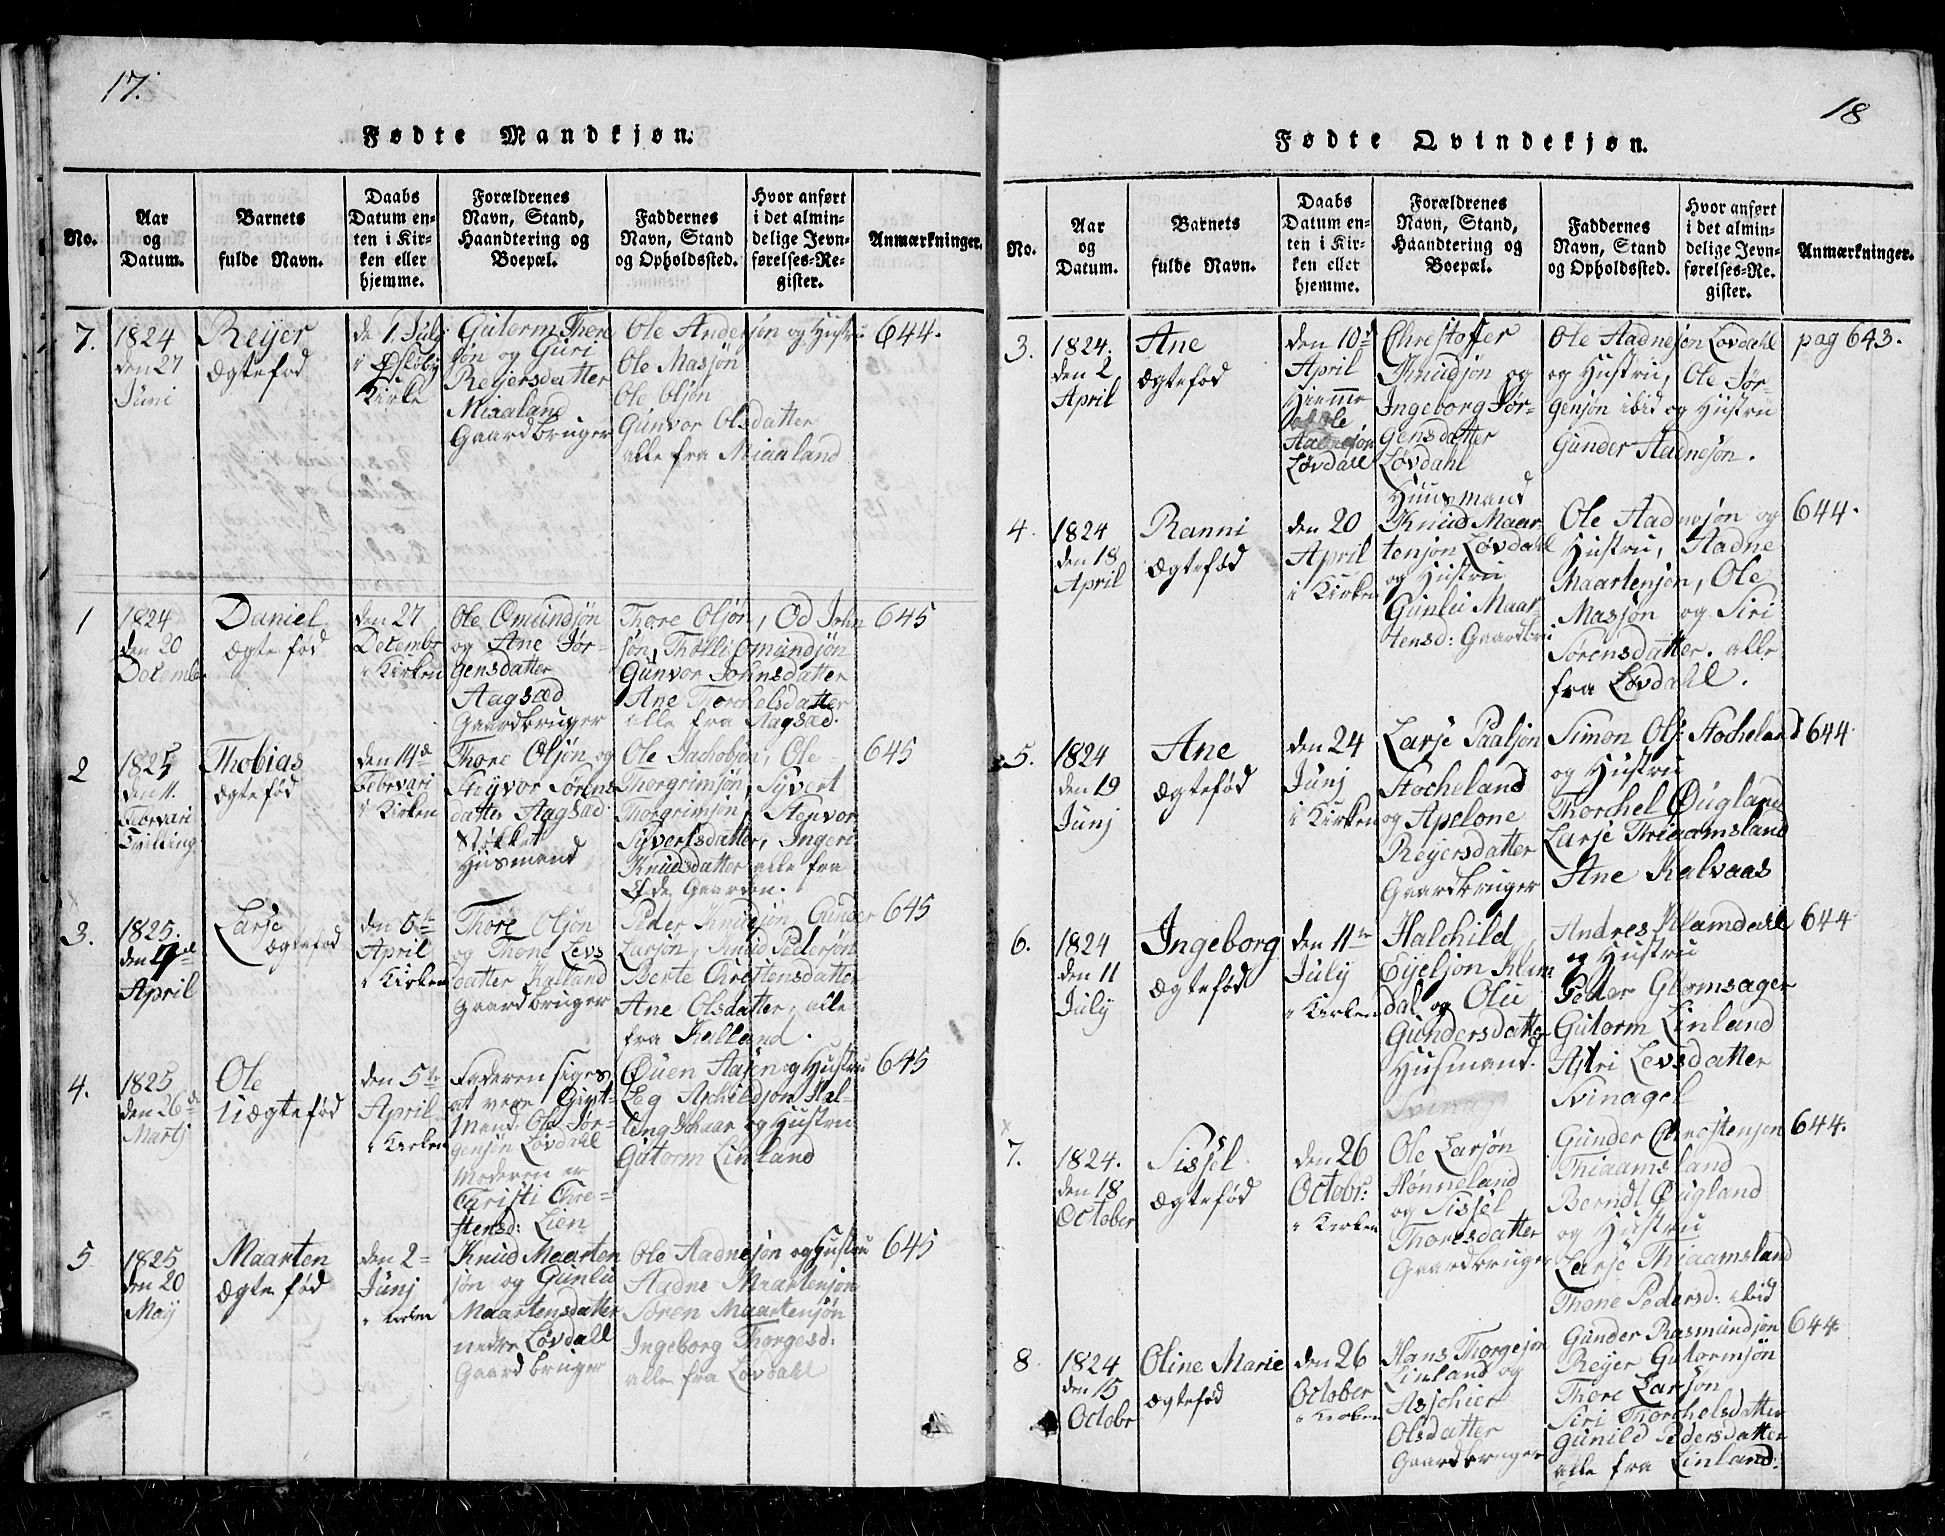 17.
Fødte Mandkjøn.
No.
Aar
og
Datum.
Barnets
fulde Navn.
Daabs
Datum en-
ten i Kir-
ken eller
hjemme.
Forældrenes
Navn, Stand,
Haandtering og
Boepæl.
Faddernes
Navn, Stand
og Opholdssted.
Hvor anført
i det almin-
delige Jevn-
førelses-Re-
gister.
Anmærkninger.
7.
1824
den 27
Juni
Reijer
Ægtefød
de 1 July
i Øsløby
Kirke
Gutorm Thore
søn og Guri
Reijersdatter
Miaaland
Gaardbruger
Ole Andersøn og Hustru
Ole Masjøn
Ole Olsøn
Gunvor Olsdatter
alle fra Miaaland
644.
1
1824
den 20
December
Daniel
Ægte fød
den 27
Decembr
i Kirken
Ole Omundsøn
og Ane Jør-
gensdatter
Aagsæd
Gaardbruger
Thore Olsøn, Od John
søn, Tholli Omundsøn
Gunvor Johnsdatter
Ane Thorchelsdatter
alle fra Aagsæd.
645
2
1825
den 11.
Februari
Tvilling
Thobias
Ægtefød
den 14de
Februari
i Kirken
Thore Olsøn og
Støyvor Sørens
datter Aagsæd
Støkket
Husmand
Ole Jachobsøn, Ole
Thorgrimsøn, Syvert
Thorgrimsøn, Stenvor
Syvertsdatter, Ingeri
Knudsdatter alle fra
Ede Gaarden.
645
3.
1825.
den
April
Larse
Ægtefød
den 5te
April
i Kirken
Thore Olsøn
og Thone Levs
datter Kalland
Gaardbruger
Peder Knudsøn, Gunder
Larsøn, Knud Pedersøn
Berte Christensdatter
Ane Olsdatter, alle
fra Kalland.
645
4.
1825
den 26de
Martj
Ole
Uægtefød
den 5te
April
i Kirken
Faderen siges
at vere Givt-
Mand Ole Jør-
gensøn Løvdahl
Moderen er
Christi Chre-
stensd: Lien
Øuen Aasen og Hustru
Leg Aschildsøn Hal-
lingschaar og Hustru
Gutorm Linland
645
5
1825
den 20
Maij
Maarten
Ægte fød
den 2
Junj
i Kirken
Knud Maarten
søn og Gunlu
Maartensdatter
nedre Løvdahl
Gaardbruger
Ole Aadnesøn og Hustru
Aadne Maartensøn
Søren Maartensøn
Ingeborg Thorgesd:
alle fra Løvdahl
645
18
Fødte Qvindekjøn.
No.
Aar
og
Datum.
Barnets
fulde Navn.
Daabs
Datum en-
ten i Kir-
ken eller
hjemme.
Forældrenes
Navn, Stand,
Haandtering og
Boepæl.
Faddernes
Navn, Stand
og Opholdssted.
Hvor anført
i det almin-
delige Jevn-
førelses-Re-
gister.
Anmærkninger.
3.
1824.
den 2
April
Ane
Ægtefød
den 10de
April
Hiemme
af Ole
Aadnesøn
Løvdahl
Christoffer
Knudsøn og
Ingeborg Jør-
gensdatter
Løvdahl
Huusmand
Ole Aadnesøn Løvdahl
og Hustru, Ole Jør-
gensøn ibid og Hustru
Gunder Aadnesøn.
pag 643.
4.
1824
den 18
April
Ranni
Ægtefød
den 20
April
i Kirken
Knud Maar
tensøn Løvdahl
og Hustru
Gunlu Maar
tensd: Gaardbru
Ole Aadnesøn og
Hustru, Aadne
Maartensøn, Ole
Masjøn og Siri
Sørensdatter. alle
fra Løvdahl.
644.
5.
1824
den 19
Junj
Ane
Ægtefød
den 24
Junj
i Kirken
Larse Paalsøn
Stocheland
og Apelone
Reijersdatter
Gaardbruger
Simon Ols: Stocheland
og Hustru
Thorchel Øugland
Larse Thiaamsland
Ane Kalvaas
644
6.
1824
den 11
July
Ingeborg
Ægtefød
den 11te
July
i Kirken
Halchild
Eyelsøn Klam
dal og Olu
Gundersdatter
Husmand.
Andres Klamdahl
og Hustru
Peder Glomsager
Gutorm Linland
Astri Levsdatter
Svinagel
644
7.
1824.
den 18
October
Sissel
Ægtefød
den 26
Octobr:
i Kirken
Ole Larsøn
Hønneland
og Sissel
Thoresdatter
Gaardbruger
Gunder Chrestensen
Thiaamsland
Berndt Øugland
og Hustru
Larse Thiaamsland
Thone Pedersd: ibid
644.
8.
1824
den 15
Octobr
Oline Marie
Ægtefød
den 26
October
i Kirken
Hans Thorgejøn
Linland og
Asschier
Olsdatter
Gaardbruger
Gunder Rasmundsøn
Reijer Gutormsøn
Thore Larsøn
Siri Thorchelsdatter
Gunild Pedersdatter
alle fra Linland.
644.